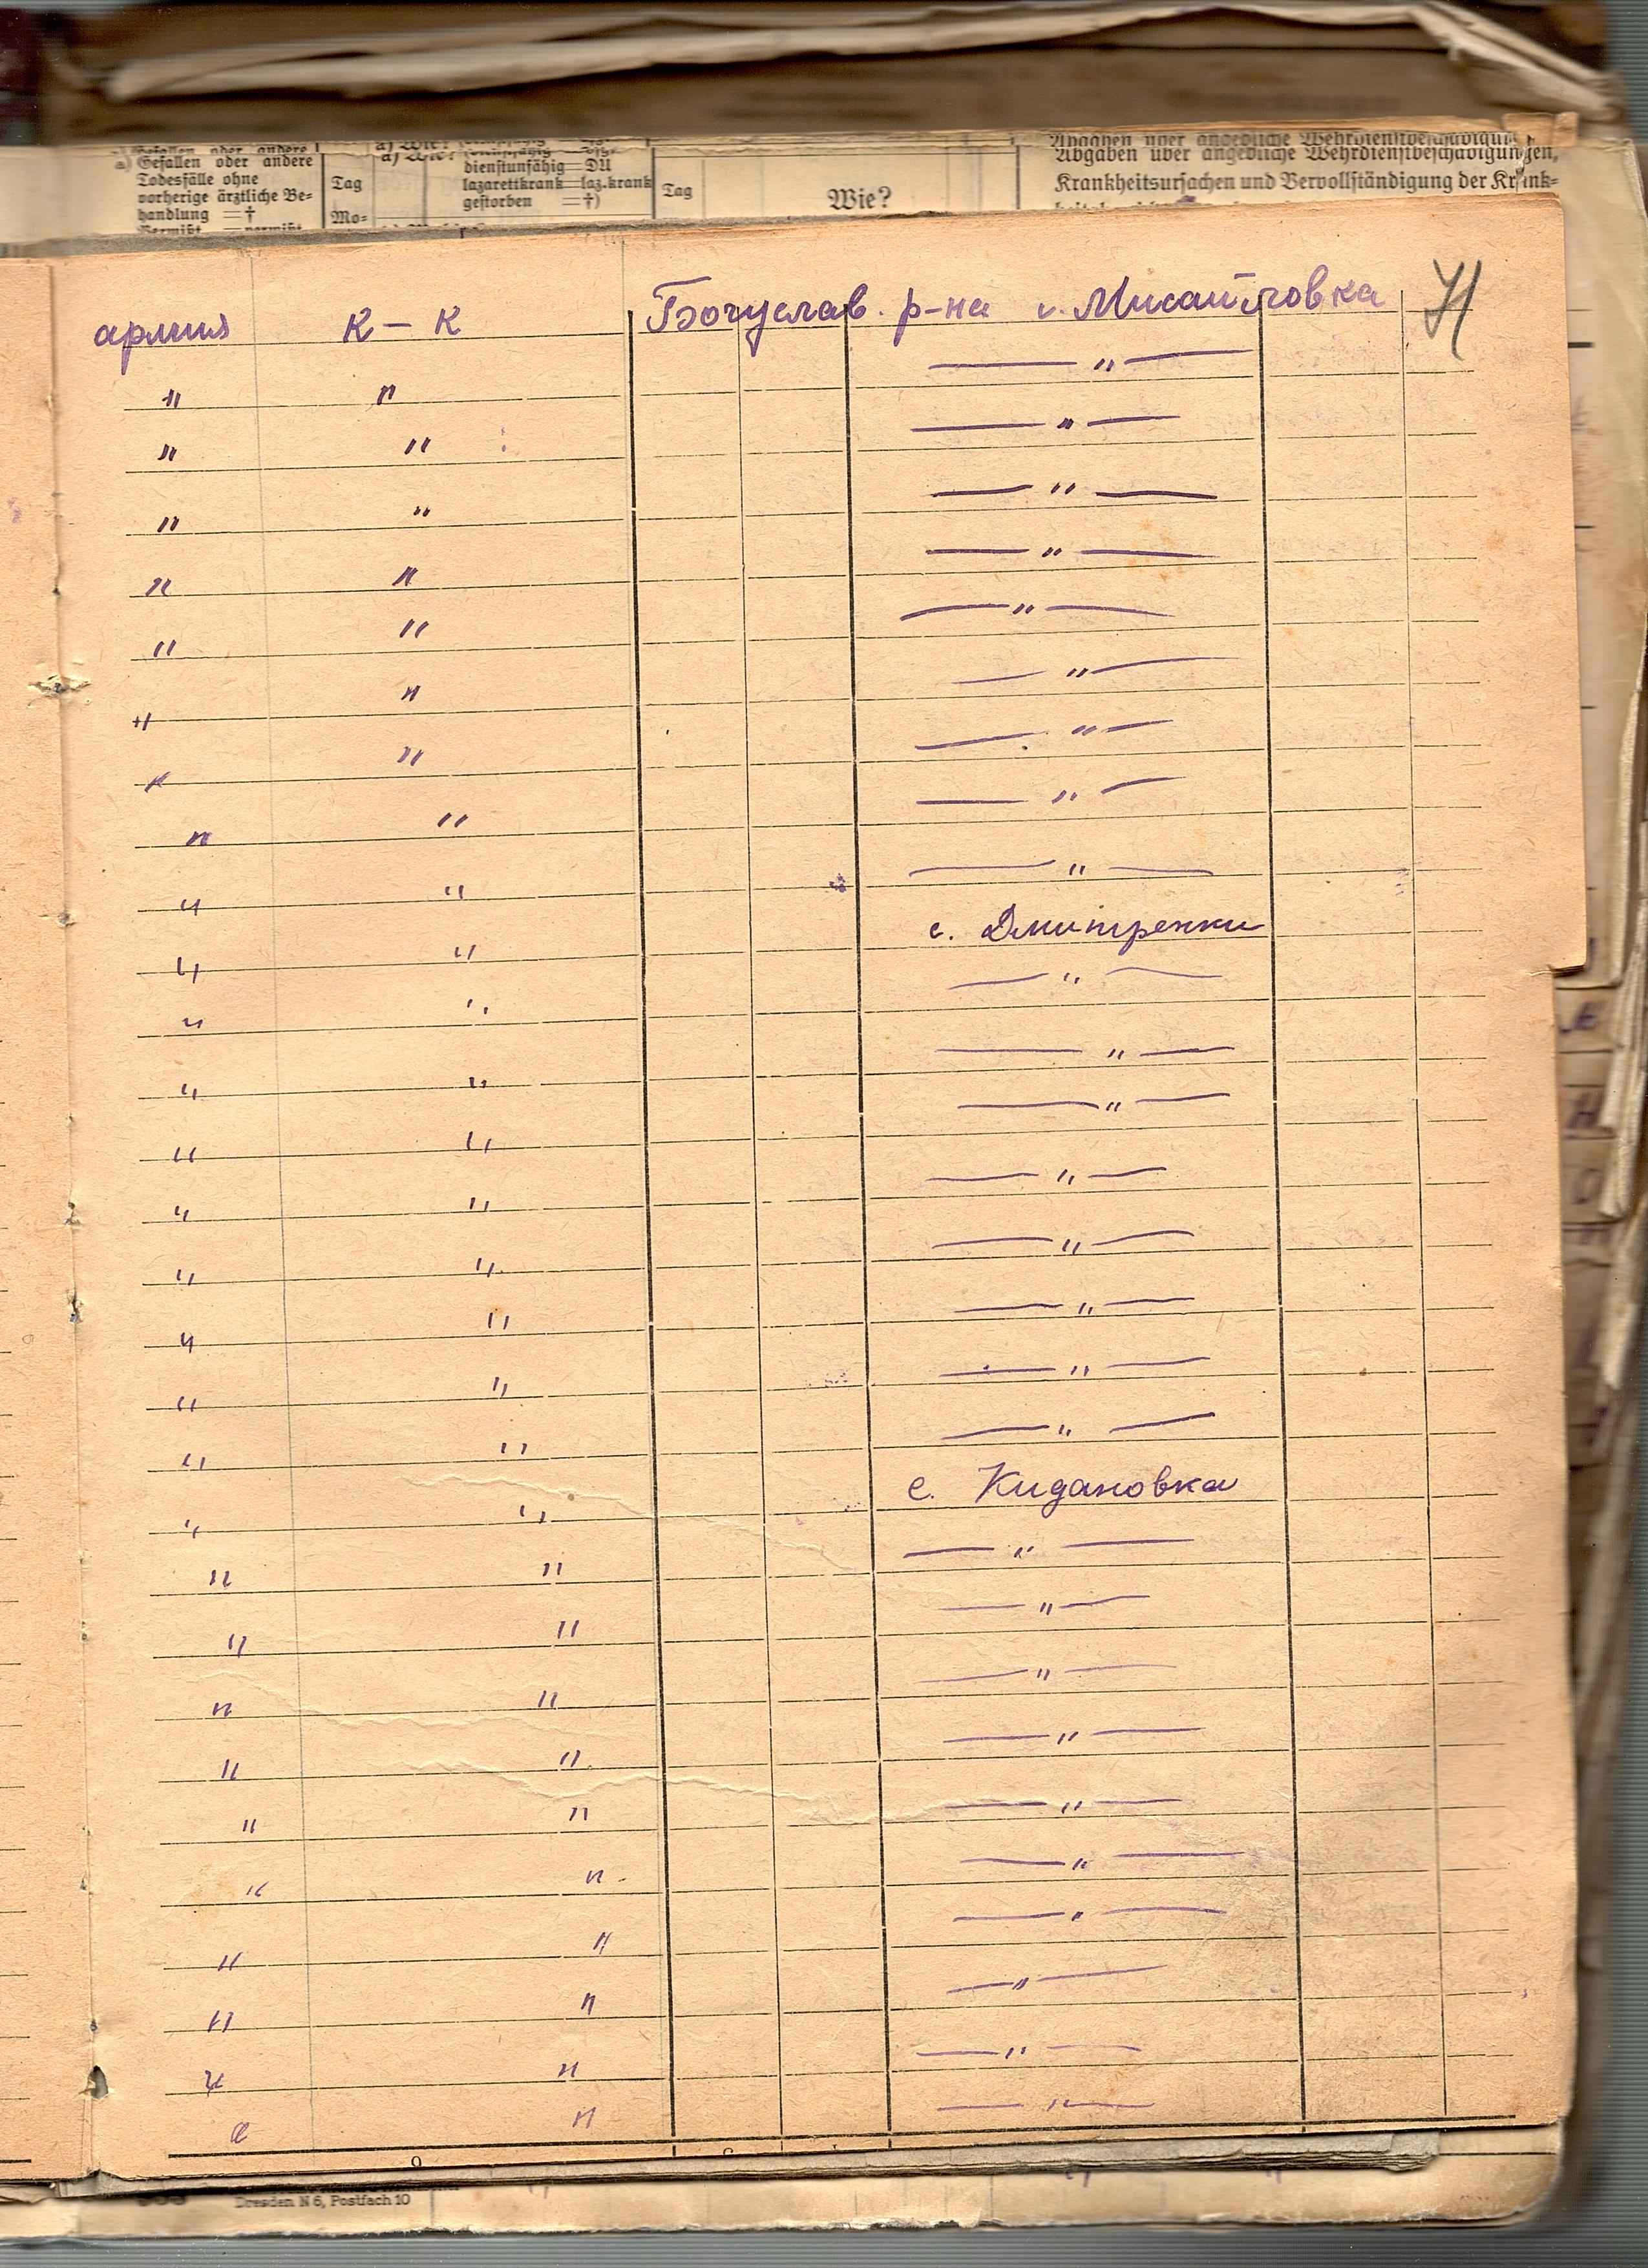 Gefallen oder andere
Todesfälle ohne
vorherige ärztliche Be-
handlung =†
Tag
Mo-
dienstunfähig =DU
lazarettkrank=laz.krank
gestorben =†)
Tag
Wie?
Abgaben über angebliche Wehrdienstbeschädigungen,
Krankheitsursachen und Vervollständigung der Krank-
армия К – К Богуслав. р-на с. Мисайловка 71
" " — " —
" " — " —
" " — " —
" " — " —
" " — " —
" " — " —
" " — " —
" " — " —
" " — " —
" " с. Дмитренки
" " — " —
" " — " —
" " — " —
" " — " —
" " — " —
" " — " —
" " — " —
" " — " —
" " с. Кидановка
" " — " —
" " — " —
" " — " —
" " — " —
" " — " —
" " — " —
" " — " —
" " — " —
" " — " —
" " — " —
Dresden N 6, Postfach 10